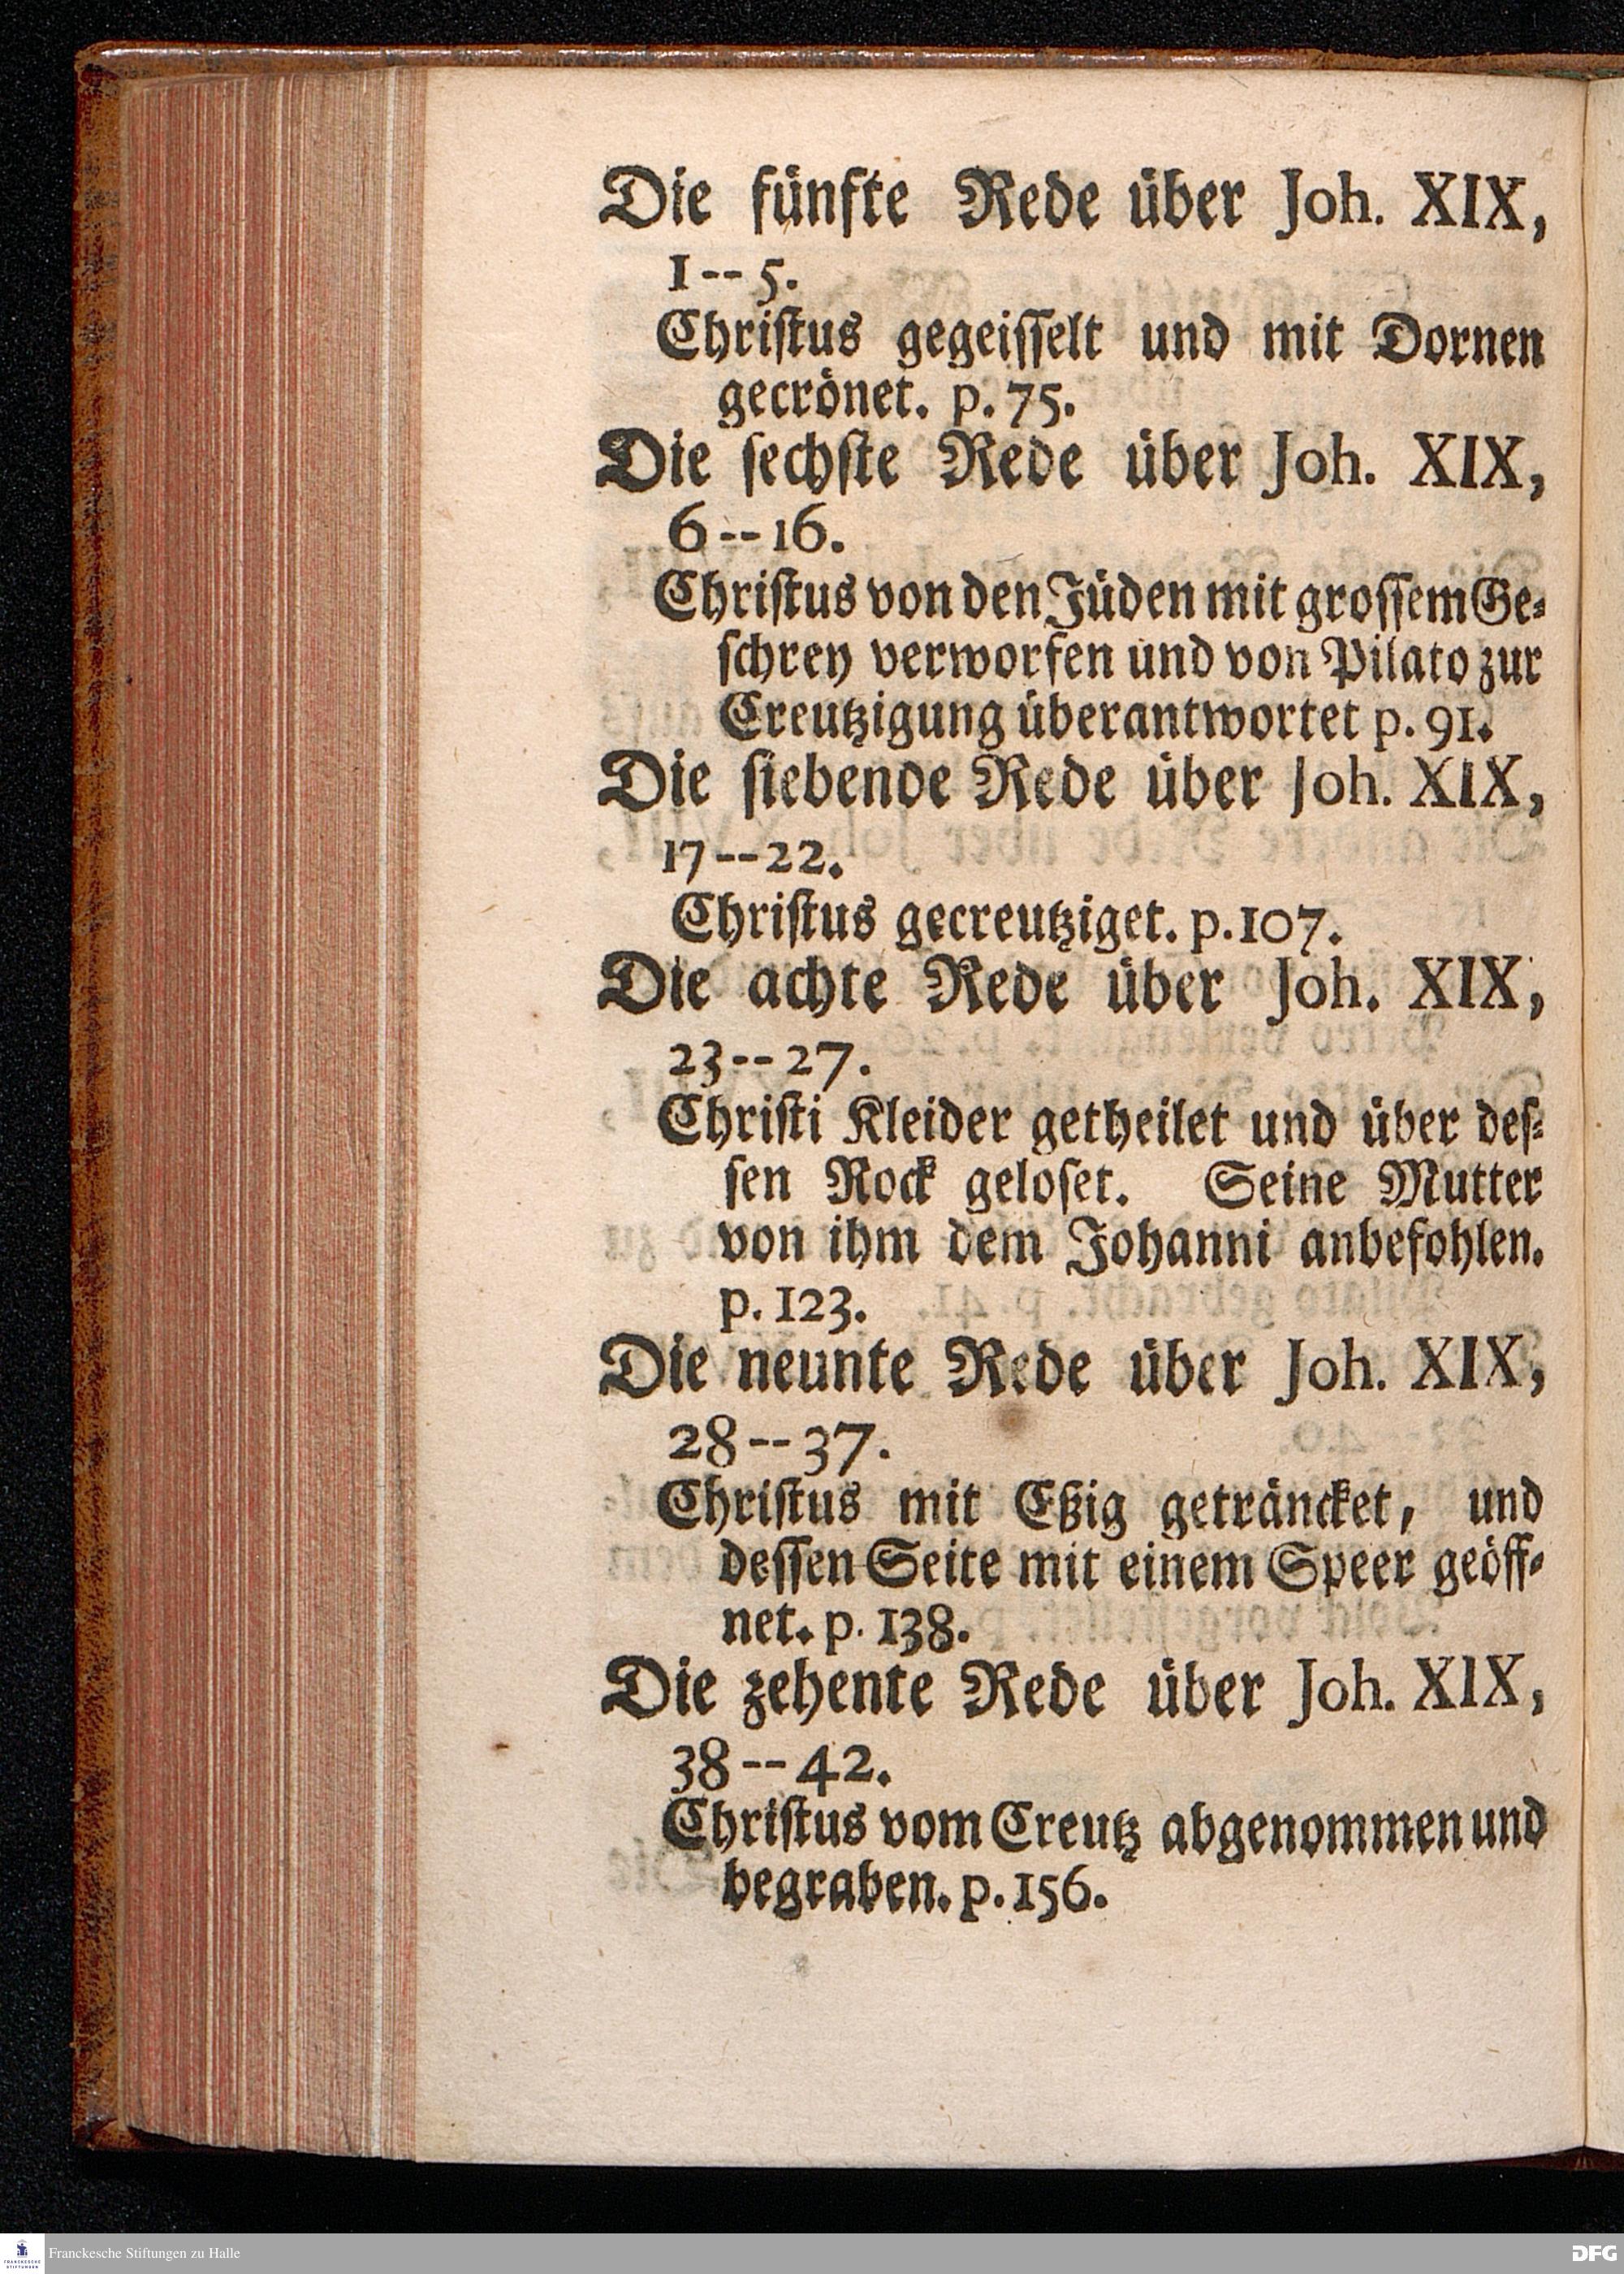 Die fünfte Rede über Joh. XIX,
1--5.
Christus gegeisselt und mit Dornen
gecrönet. p. 75.
Die sechste Rede über Joh. XIX,
6--16.
Christus von den Jüden mit grossem Ge-
schrey verworfen und von Pilato zur
Creutzigung überantwortet p. 91.
Die siebende Rede über Joh. XIX,
17--22.
Christus gecreutziget. p. 107.
Die achte Rede über Joh. XIX,
23--27.
Christi Kleider getheilet und über des-
sen Rock geloset. Seine Mutter
von ihm dem Johanni anbefohlen.
p. 123.
Die neunte Rede über Joh. XIX,
28--37.
Christus mit Eßig geträncket, und
dessen Seite mit einem Speer geöff-
net. p. 138.
Die zehente Rede über Joh. XIX,
38--42.
Christus vom Creutz abgenommen und
begraben. p. 156.
FRANCKESCHE
STIFTUNGEN
Franckesche Stiftungen zu Halle
DFG